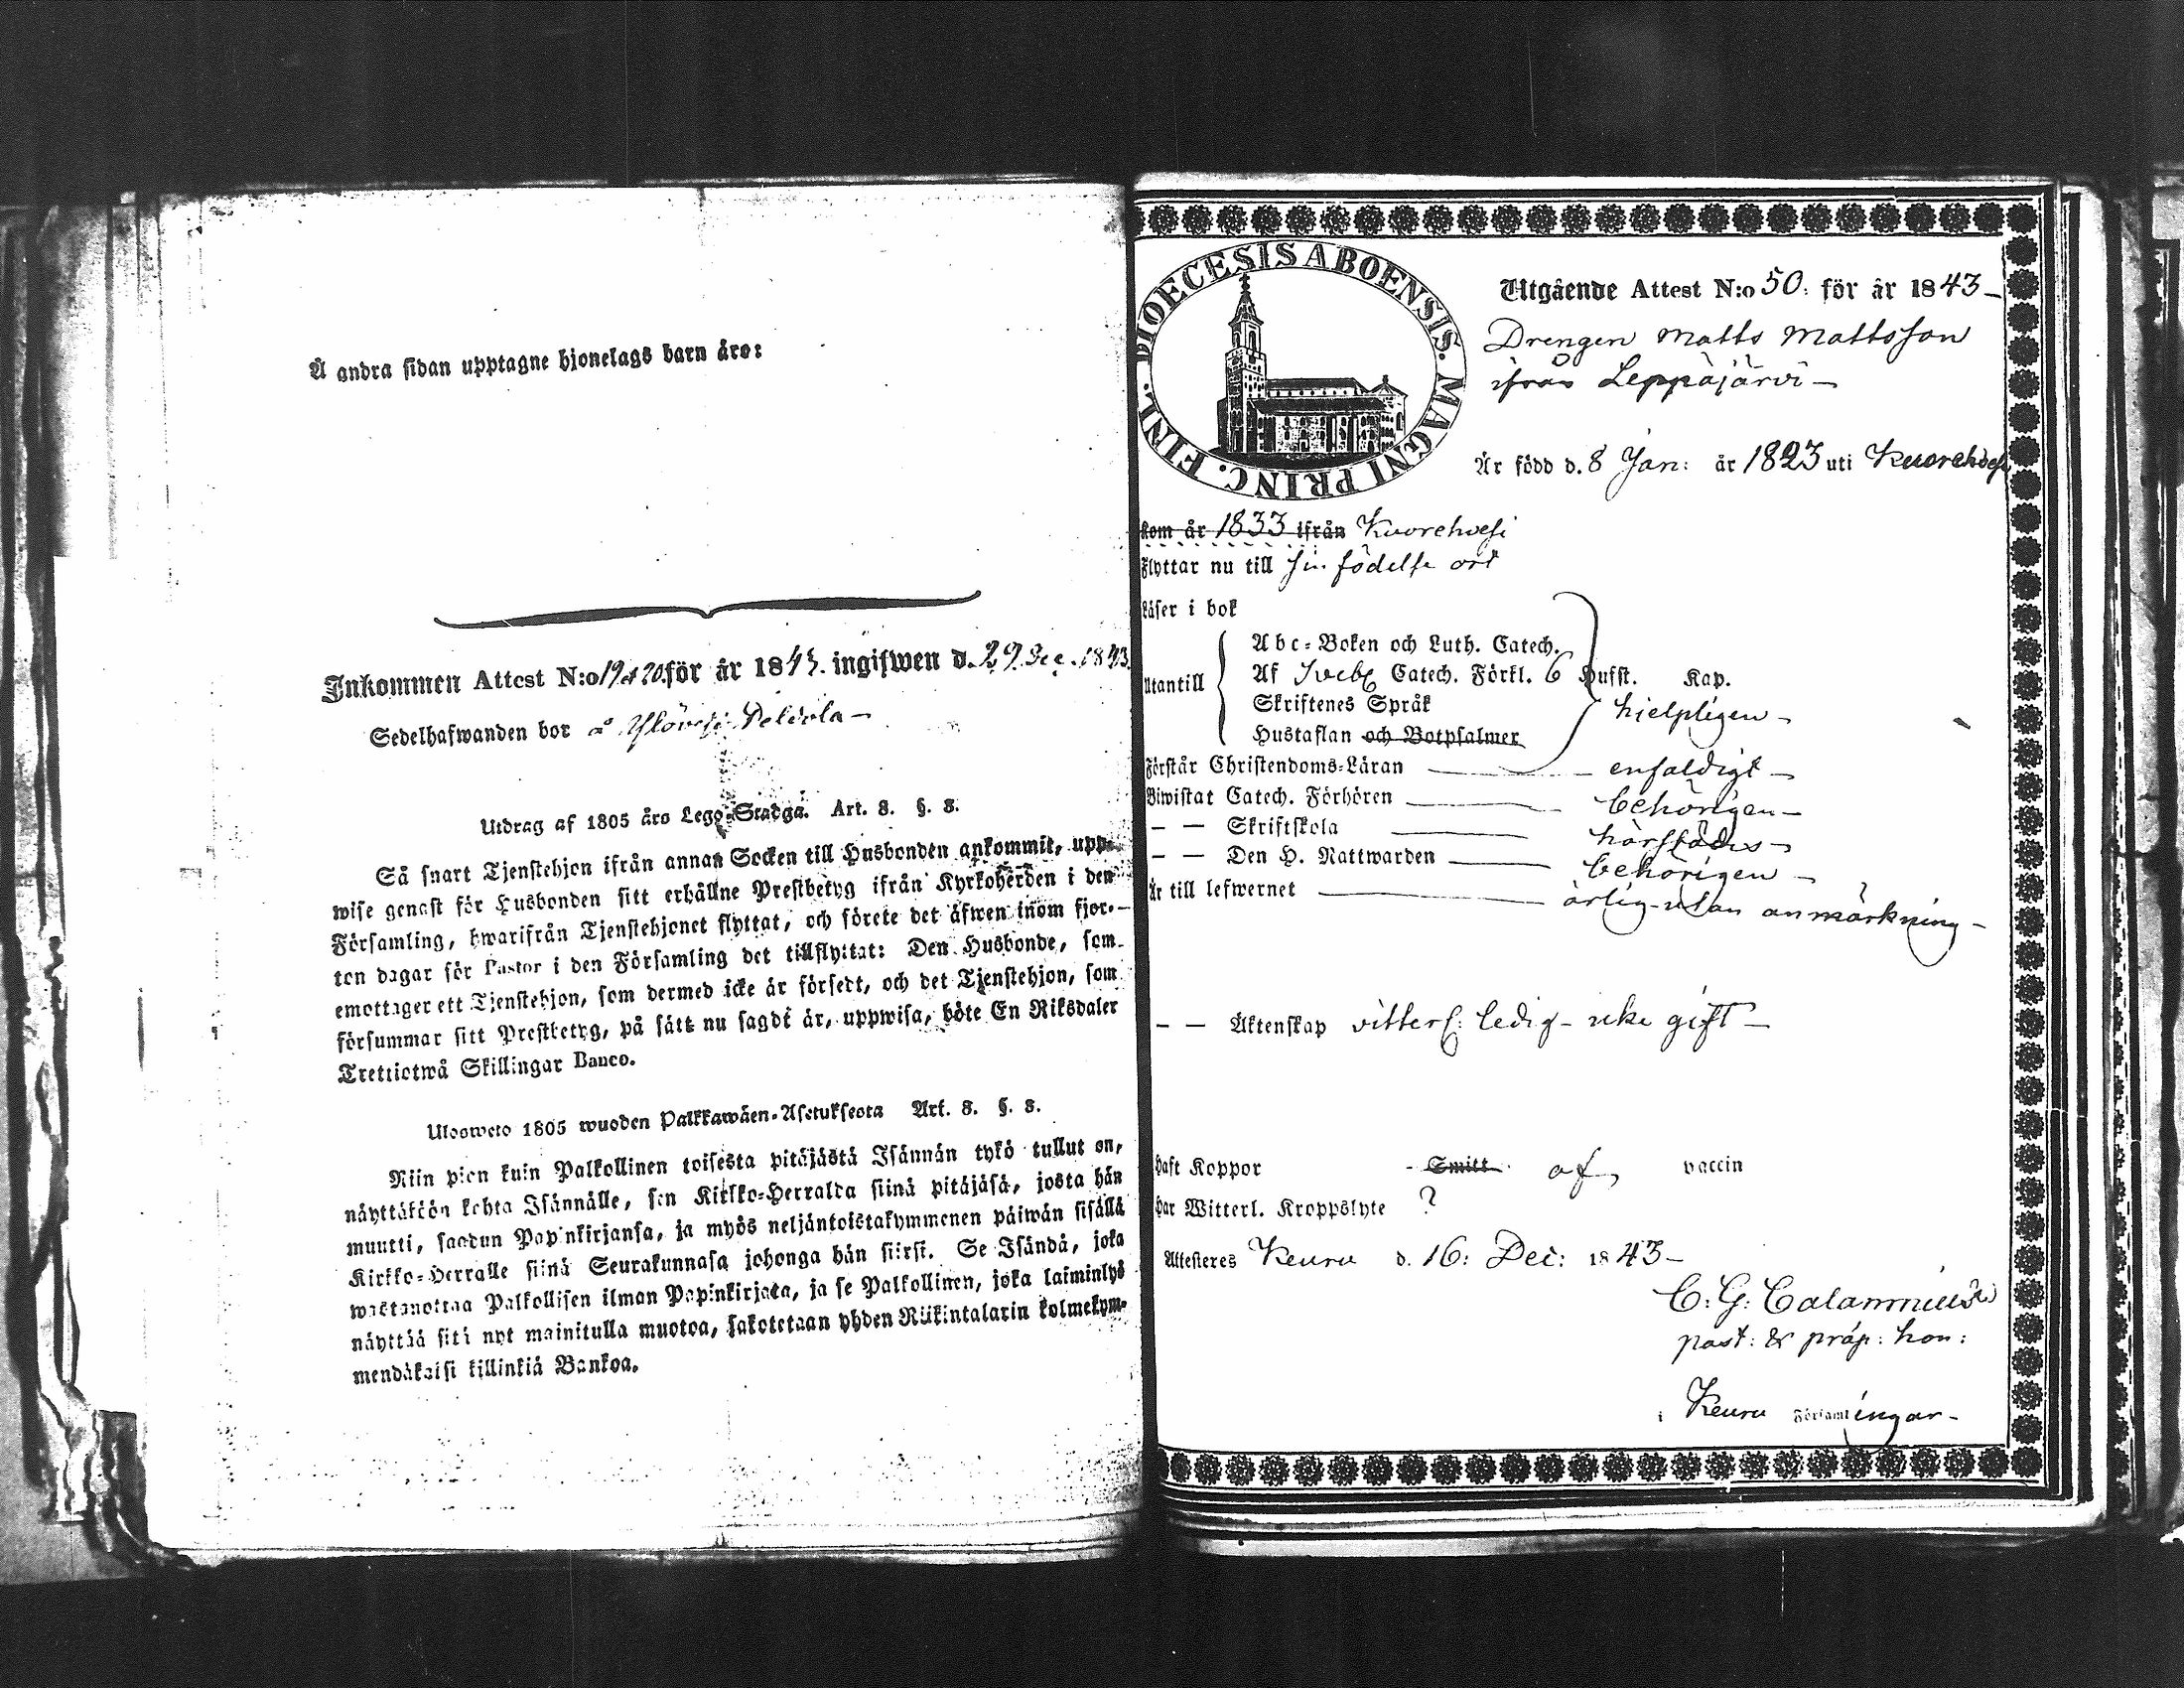 Å andra sidan upptagne hjonelags barn äro:
Inkommen Attest N:o 19 et 20. för år 1843. ingifwen d. 29 Dec. 1843.
Sedelhafwanden bor å
Utdrag af 1805 års Lego-Stadga. Art. 8. §. 8.
Så snart Tjenstehjon ifrån annan Socken till Husbonden ankommit, upp-
wise genast för Husbonden sitt erhållne Prestbetyg ifrån Kyrkoherden i den
Församling, hwarifrån Tjenstehjonet flyttat, och förete det äfwen inom fjor-
ton dagar för Pastor i den Församling det tillflyttat: Den Husbonde, som
emottager ett Tjenstehjon, som dermed icke är försedt, och det Tjenstehjon, som
försummar sitt Prestbetyg, på sätt nu sagdt är, uppwisa, böte En Riksdaler
Trettiotwå Skillingar Banco.
Ulosweto 1805 wuoden Palkkawäen-Asetuksesta Art. 8. §. 8.
Niin pian kuin Palkollinen toisesta pitäjästä Isännän tykö tullut on,
näyttäköön kohta Isännälle, sen Kirkko-Herralda siinä pitäjäsä, josta hän
muutti, saadun Papinkirjansa, ja myös neljäntoistakymmenen päiwän sisällä
Kirkko-Herralle siinä Seurakunnasa johonga hän siirsi. Se Isändä, joka
wastanottaa Palkollisen ilman Papinkirjata, ja se Palkollinen, joka laiminlyö
näyttää sitä nyt mainitulla muotoa, sakotetaan yhden Riikintalarin kolmekym-
mendäkaksi killinkiä Bankoa.
DIOECESIS ABOENSIS. MAGNI PRINC. FINL.
Utgående Attest N:o 50: för år 1843-
Drengen Matts Mattsson
ifrån Leppäjärvi-
Är född d. 8 Jan: år 1823 uti Kuorehvesi
kom år 1833 ifrån Kuorehvesi
Flyttar nu till sin födelse ort
Läser i bok
Utantill
Abc-Boken och Luth. Catech.
Af Sveb. Catech. Förkl. 6 Hufst. Kap.
Skriftenes Språk hielpligen-
Hustaflan och Botpsalmer
Förstår Christendoms-Läran - enfaldigt-
Biwistat Catech. Förhören behörigen-
- - Skriftskola härstädes-
- - Den H. Nattwarden behörigen-
Är till lefwernet ärlig-utan anmärkning-
- - Äktenskap vitterl: ledig- icke gift-
Haft Koppor - Smitt. af vaccin
Har Witterl. Kroppslyte ?
Attesteres Keuru d. 16: Dec: 1843-
C: G: Calamnius
past: & präp: hon:
i Keuru Församlingar-